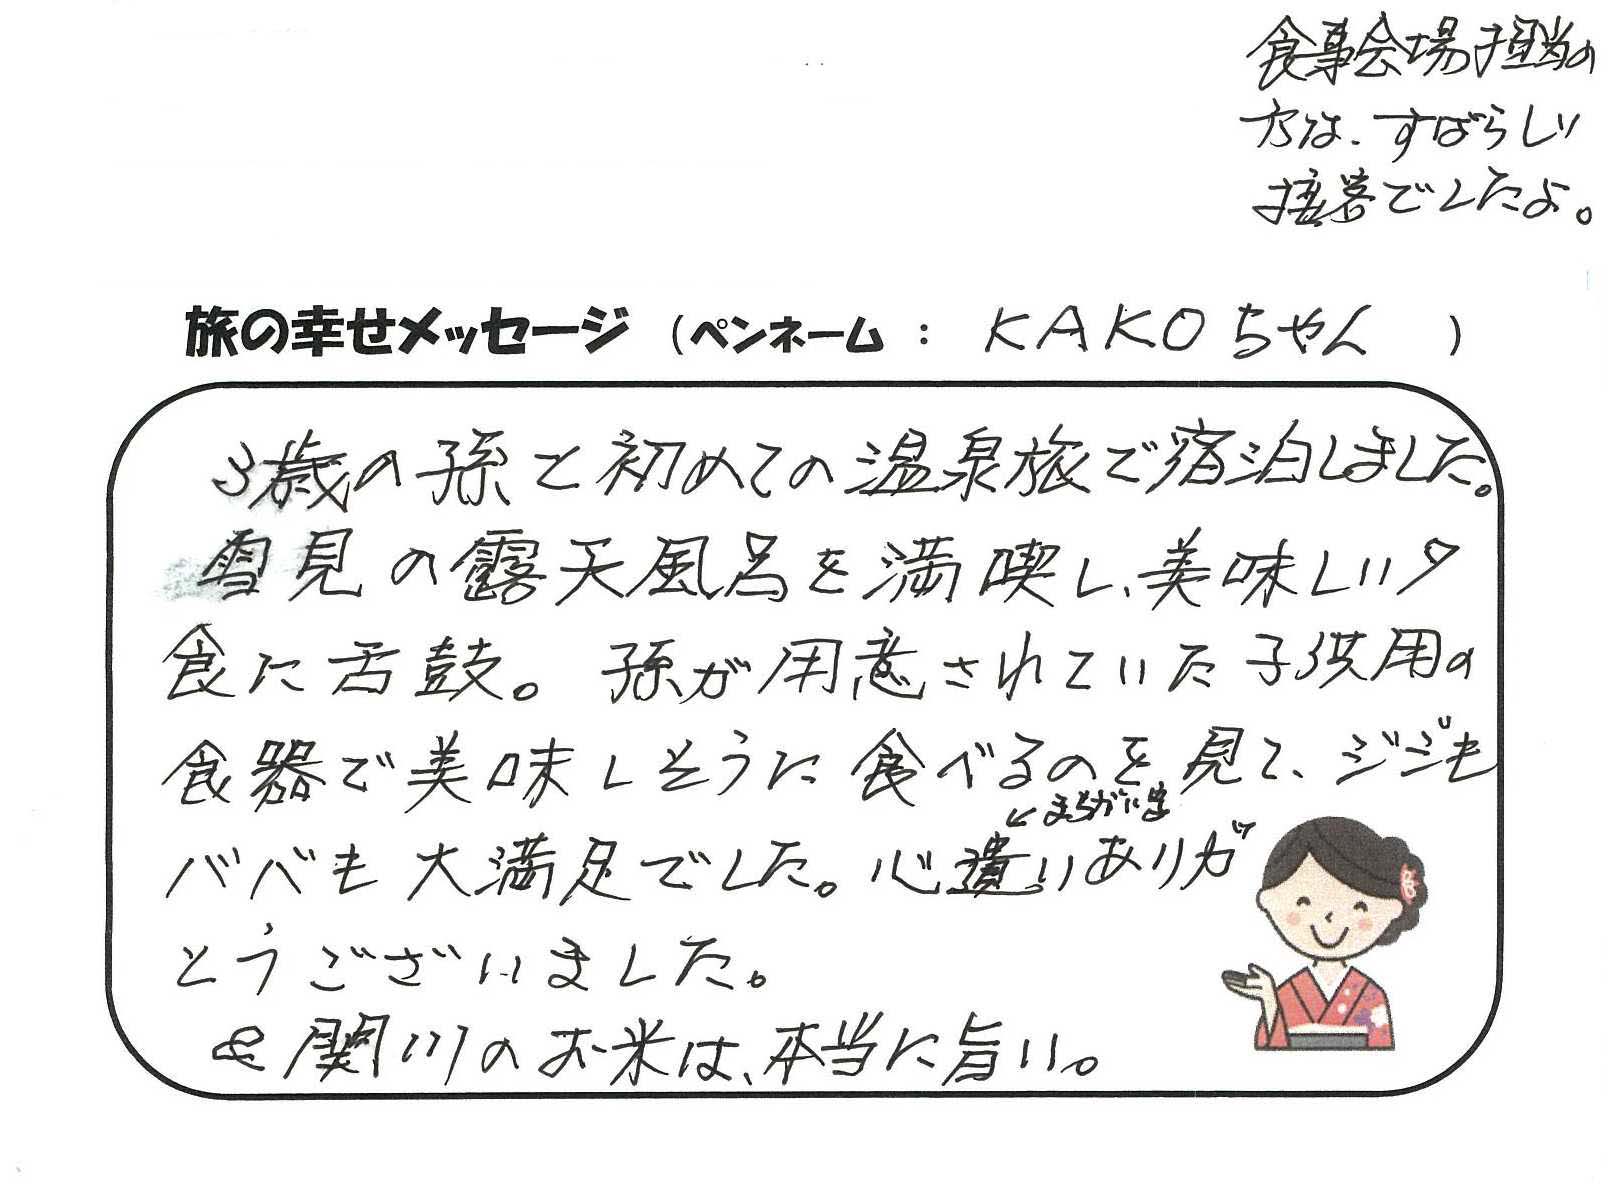 食事会場担当の
方は、すばらしい
接客でしたよ。
旅の幸せメッセージ (ペンネーム : KAKOちゃん )
3歳の孫と初めての温泉旅で宿泊しました。
雪見の露天風呂を満喫し、美味しい夕
食に舌鼓。孫が用意されていた子供用の
食器で美味しそうに食べるのを見て、ジジも
←まちがい字
ババも大満足でした。心遣いありが
とうございました。
&関川のお米は、本当に旨い。